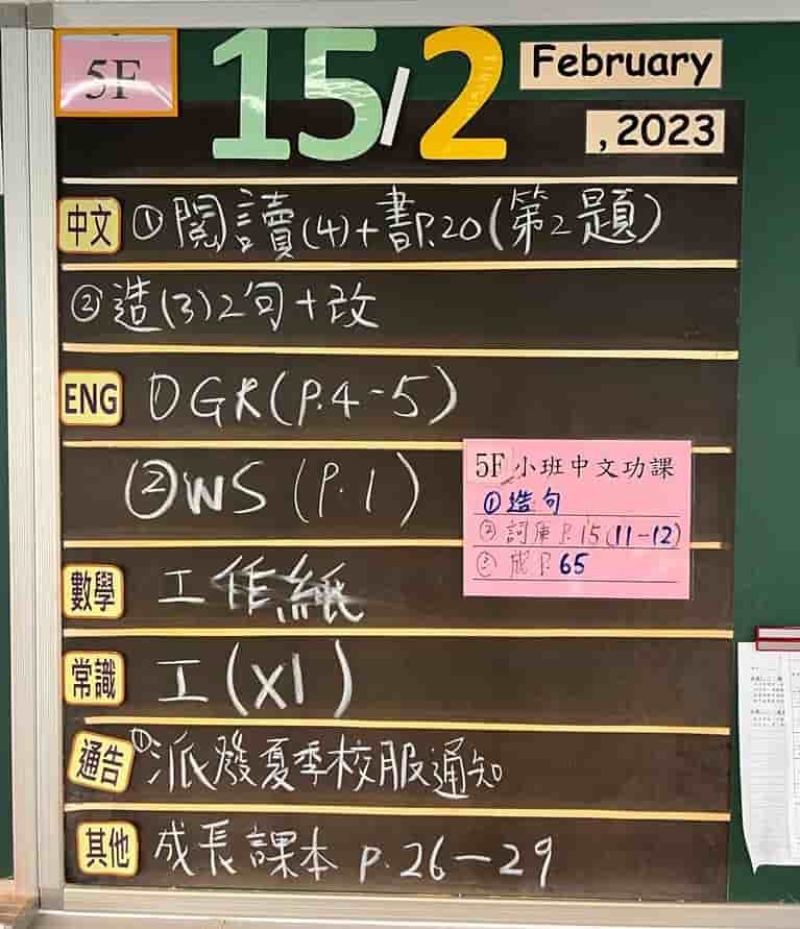 5F
15/2
February
, 2023
中文 ①閱讀(4)+書P.20(第2題)
②造(3)2句+改
ENG ①GR(P.4-5)
②WS (P.1)
5F 小班中文功課
①造句
②詞庫 P.15(11-12)
③成 P.65
數學 工作紙
常識 工(x1)
通告 ①派發夏季校服通知
其他 成長課本 p.26-29